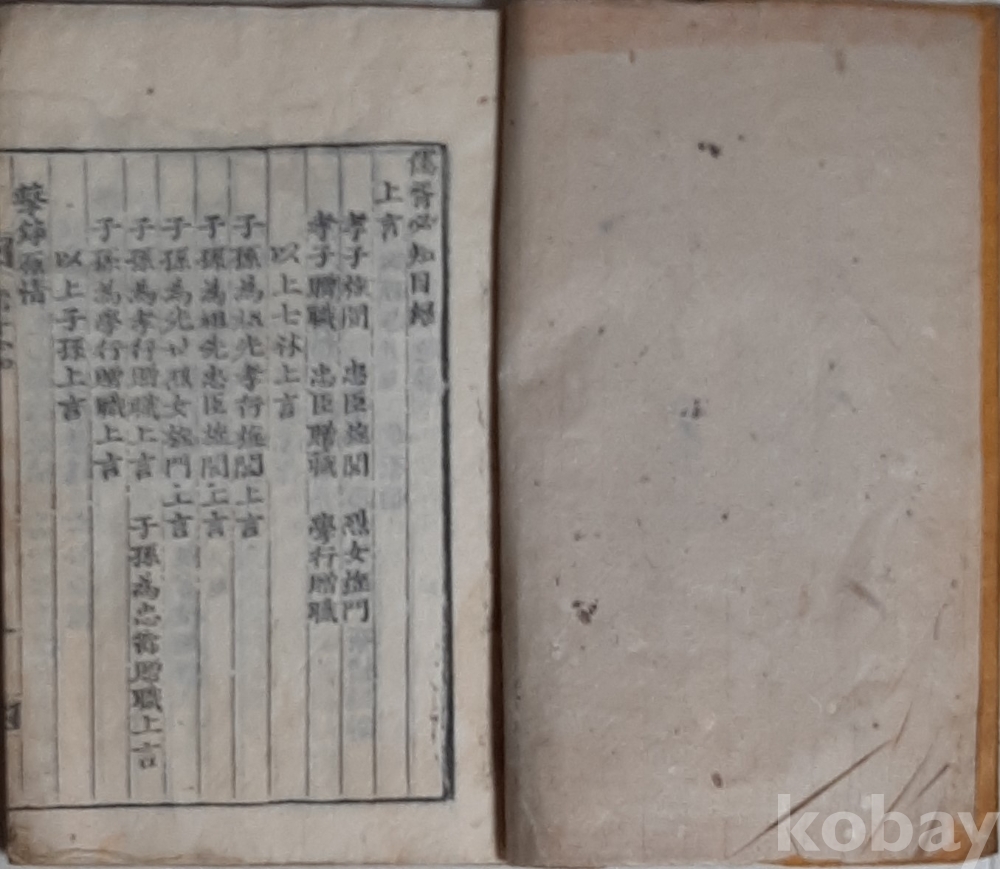 儒胥必知目錄
上言
孝子旌閭 忠臣旌閭 烈女旌門
孝子贈職 忠臣贈職 學行贈職
以上七 上言
子孫為祖先孝行旌閭上言
子孫為祖先忠臣旌閭上言
子孫為先 烈女旌門上言
子孫為孝行贈職上言 子孫為忠 贈職上言
子孫為學行贈職上言
以上子孫上言
擊錚原情
kobay